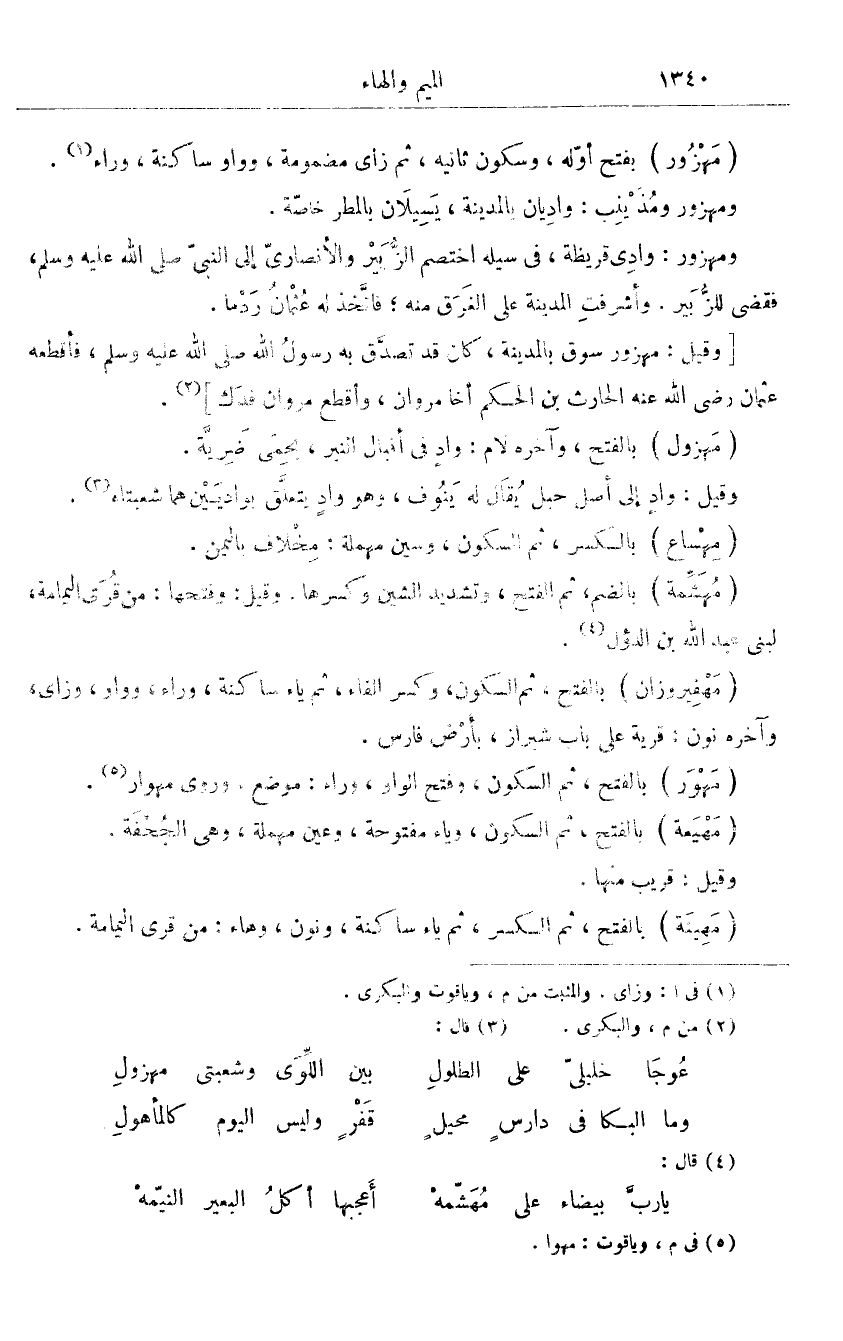 ١٣٤٠ الميم والهاء
( مَهْزُور ) بفتح أوّله ، وسكون ثانيه ، ثم زاى مضمومة ، وواو ساكنة ، وراء(١) .
ومهزور ومُذَيْنِب : واديان بالمدينة ، يَسِيلَان بالمطر خاصّة .
ومهزور : وادِى قريظة ، فى سيله اختصم الزُّبَيْر والأنصارىّ إلى النبىّ صلى الله عليه وسلم،
فقضى للزُّبَير . وأشرفتِ المدينة على الغَرَق منه ؛ فاتَّخذ له عُثْمانُ رَدْما .
[ وقيل : مهزور سوق بالمدينة ، كان قد تصدَّق به رسولُ الله صلى الله عليه وسلم ، فأقطعه
عثمان رضى الله عنه الحارث بن الحكم أخا مروان ، وأقطع مروان فدَك ](٢) .
( مَهزول ) بالفتح ، وآخره لام : وادٍ فى أقبال النير ، بحِمَى ضَرِيَّة .
وقيل : وادٍ إلى أصل جبل يُقاَل له يَنُوف ، وهو وادٍ يتعلَّق بواديَيْن هما شعبتاه(٣) .
( مِهْساع ) بالكسر ، ثم السكون ، وسين مهملة : مِخْلاف باليمن .
( مُهَشِّمة ) بالضم، ثم الفتح ، وتشديد الشين وكسرها . وقيل : وفتحها : من قُرَى اليمامة،
لبنى عبد الله بن الدؤل(٤) .
( مَهْفِيروزان ) بالفتح ، ثم السكون، وكسر الفاء ، ثم ياء ساكنة ، وراء ، وواو ، وزاى،
وآخره نون : قرية على باب شيراز ، بأرْض فارس .
( مَهْوَر ) بالفتح ، ثم السكون ، وفتح الواو ، وراء : موضع . وروى مهوار(٥) .
( مَهْيَعة ) بالفتح ، ثم السكون ، وياء مفتوحة ، وعين مهملة ، وهى الجُحْفَة .
وقيل : قريب منها .
( مَهِينَة ) بالفتح ، ثم الكسر ، ثم ياء ساكنة ، ونون ، وهاء : من قرى اليمامة .
(١) فى ا : وزاى . والمثبت من م ، وياقوت والبكرى .
(٢) من م ، والبكرى . (٣) قال :
عُوجَا خليلىّ على الطلولِ بين اللِّوَى وشعبتى مهزولِ
وما البكا فى دارسٍ محيلٍ قَفْرٍ وليس اليوم كالمأهولِ
(٤) قال :
ياربَّ بيضاء على مُهَشّمهْ أَعجبها أكلُ البعير النيّمهْ
(٥) فى م ، وياقوت : مهوا .